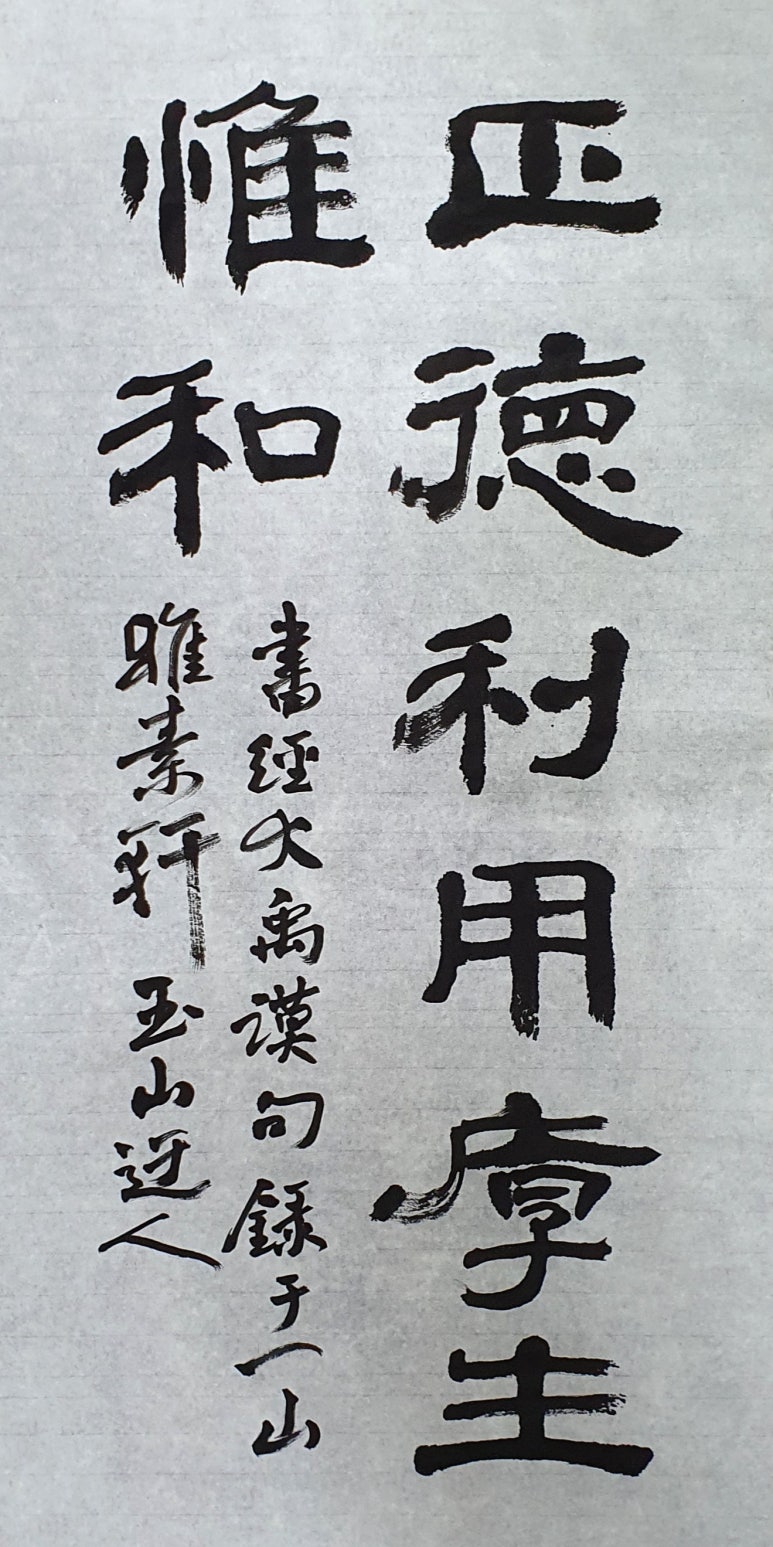 正德利用厚生
惟和
書經大禹謨句 錄于一山
雅素軒 玉山迂人